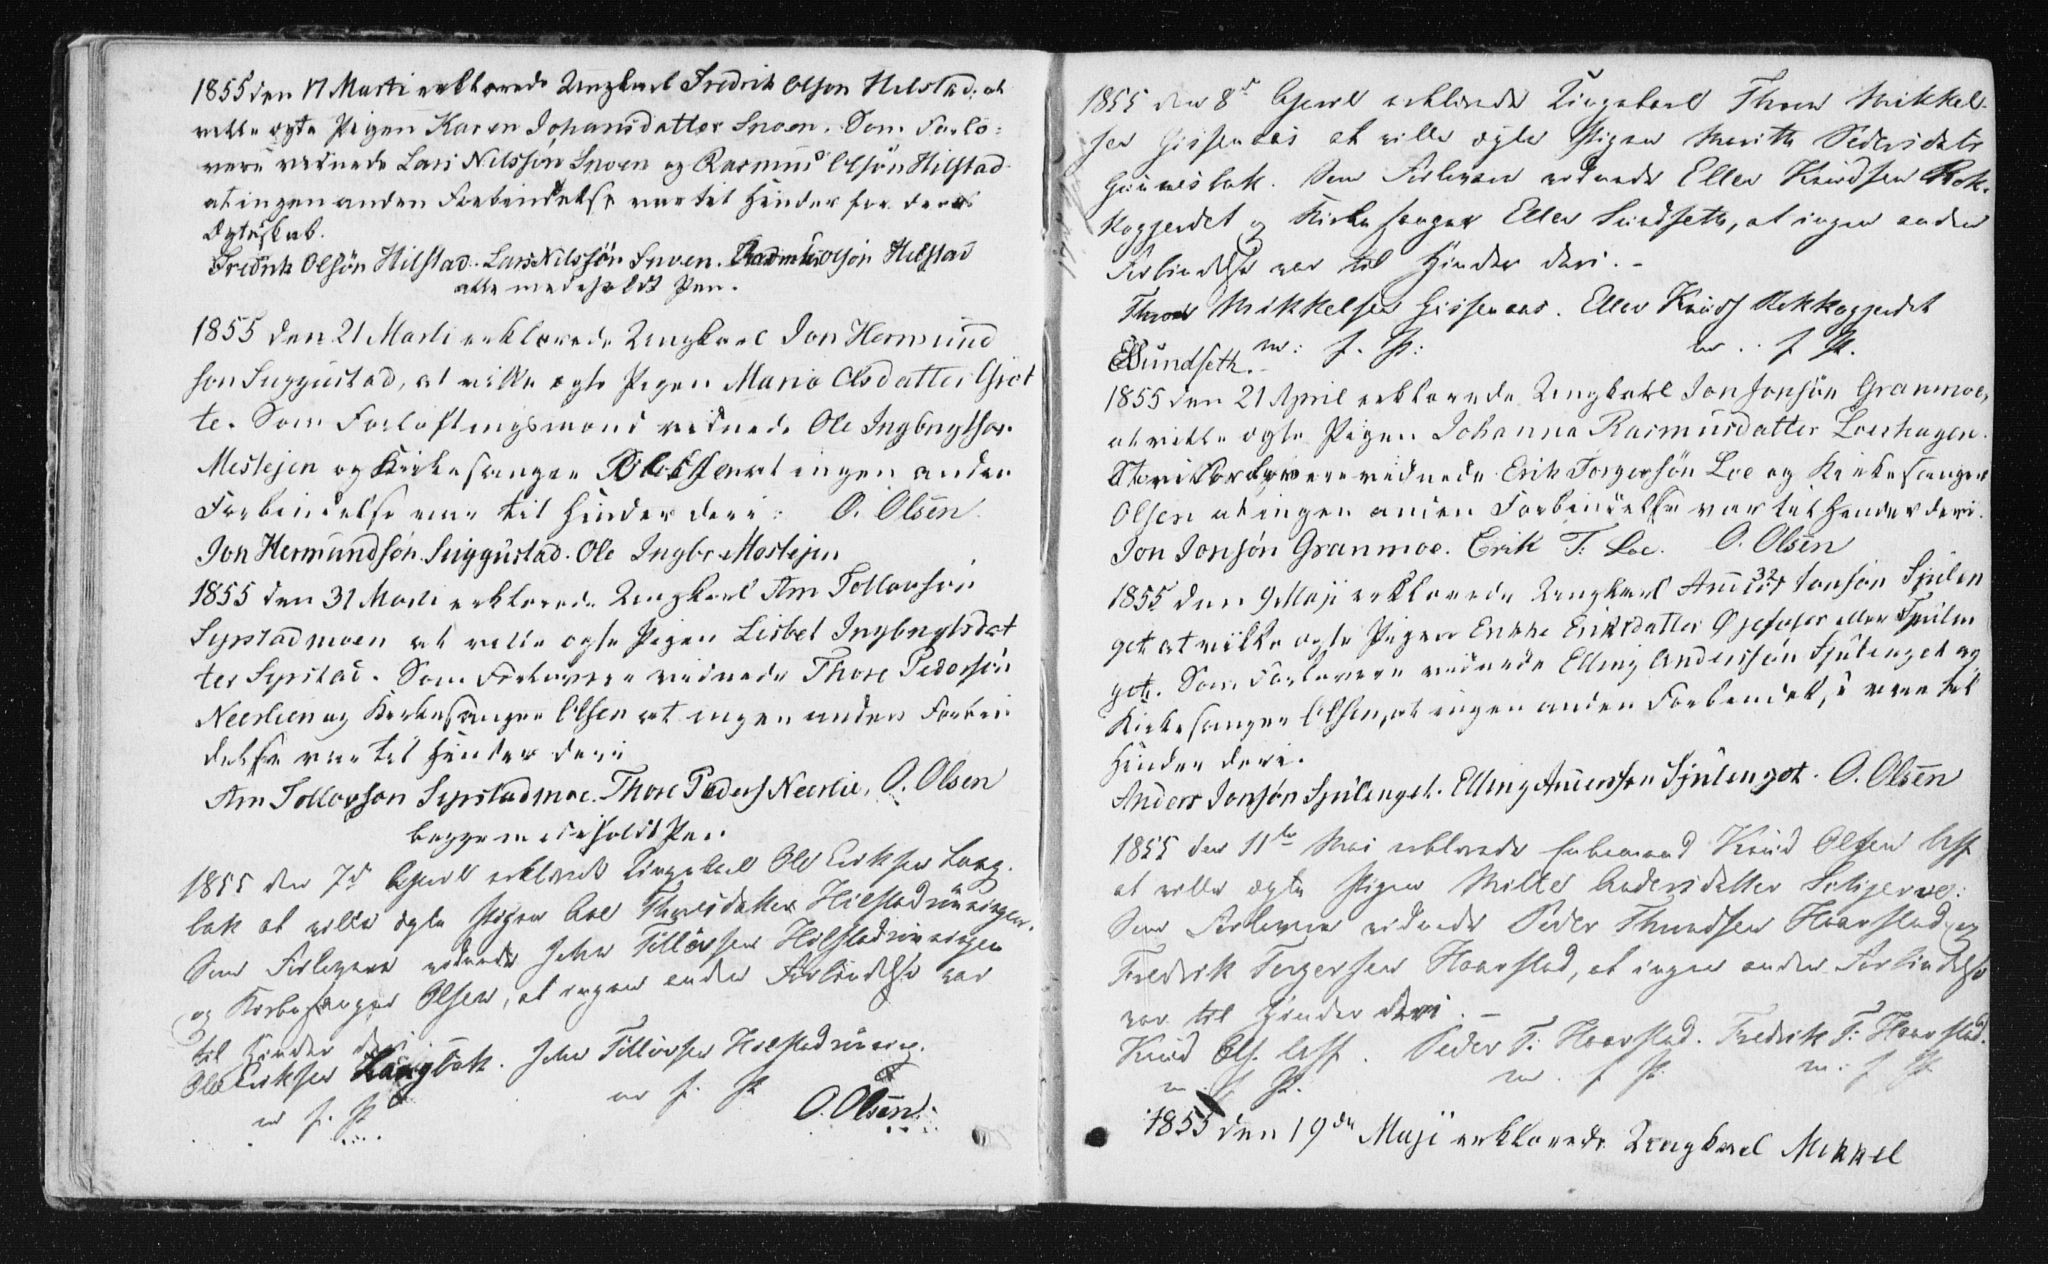 1855 den 17 Marti erklærede Ungkarl Fredrik Olsøn Hilstad at
ville ægte Pigen Karen Johansdatter Snoen. Som Forlo-
vere vidnede Lars Nilssøn Snoen og Rasmus Olsøn Hilstad
at ingen anden Forbindelse var til Hinder for deres
Ægteskab.
Fredrik Olsøn Hilstad. Lars Nilssøn Snoen. Rasmus Olsøn Hilstad
alle med iholdt Pen.
1855 den 21 Marti erklærede Ungkarl Jon Hermund
søn Suggustad, at ville ægte Pigen Maria Olsdatter Grøt
te. Som Forloftingsmænd vidnede Ole Ingbrigtsøn
Mostejen og Kirkesanger Olsen at ingen anden
Forbindelse var til Hinder deri: O. Olsen
Jon Hermundsøn Suggustad. Ole Ingbr Mostejen
1855 den 31 Marti erklærede Ungkarl Arn Tollovsøn
Syrstadmoen at ville ægte Pigen Lisbet Ingbrigtsdat
ter Syrstad. Som Forlovere vidnede Thore Pedersøn
Neerlien og Kirkesanger Olsen at ingen anden Forbin
delse var til Hinder deri
Arn Tollovson Syrstadmoe. Thore Peders Neerlie, O. Olsen
begge med iholdt Pen.
1855 den 7d April erklærede Ungkarl Ole Eriksen Lang-
bak at ville ægte Pigen Thoresdatter Hilstadrønningen.
Som Forlovere vidnede John Tilløvsen Hilstadrønningen
og Kirkesanger Olsen, at ingen anden Forbindelse var
til Hinder deri
Ole Eriksen Langbak. John Tillovsen Hilstadrønning.
m. f. P. m f. P O. Olsen
1855 den 8d April erklærede Ungekarl Thore Mikkel-
sen Gissenaas at ville ægte Pigen Marith Pedersdatr
Som Forlovere vidnede Ellev Knudsen Rek-
kogjerdet og Kirkesanger Ellev Sundseth, at ingen anden
Forbindelse var til Hinder deri. -
Thore Mikkelsen Gissenaas. Ellev Knuds Rekkogjerdet
ESundseth. m: f. P: m. f P.
1855 den 21 April erklærede Ungkarl Jon Jonsøn Granmoe,
at ville ægte Pigen Johanna Rasmusdatter Loehagen.
Som Forlovere vidnede Erik Torgersøn Loe og Kirkesanger
Olsen at ingen anden Forbindelse var til Hinder deri.
Jon Jonsøn Granmoe. Erik T. Loe. O. Olsen
1855 den 9 Maji erklærede Ungkarl Anders 32 Jonsøn Sjulen
get at ville ægte Pigen Eriksdatter eller Sjulen
get. Som Forlovere vidnede Elling Anderssøn Sjulenget og
Kirkesanger Olsen, at ingen anden Forbindelse var til
Hinder deri.
Anders Jonsøn Sjulenget. Elling Andersson Sjulenget. O. Olsen
1855 den 11te Mai erklærede Enkemand Knud Olsen
at ville ægte Pigen Mille Andersdatter
Som Forlovere vidnede Peder Thoresen Haarstad og
Fredrik Torgersen Haarstad, at ingen anden Forbindelse
var til Hinder deri. -
Knud Ols. Peder T: Haarstad. Fredrik T: Haarstad.
m. f. P. m. f P. m: f P.
1855 den 19de Maji erklærede Ungkarl Mikkel